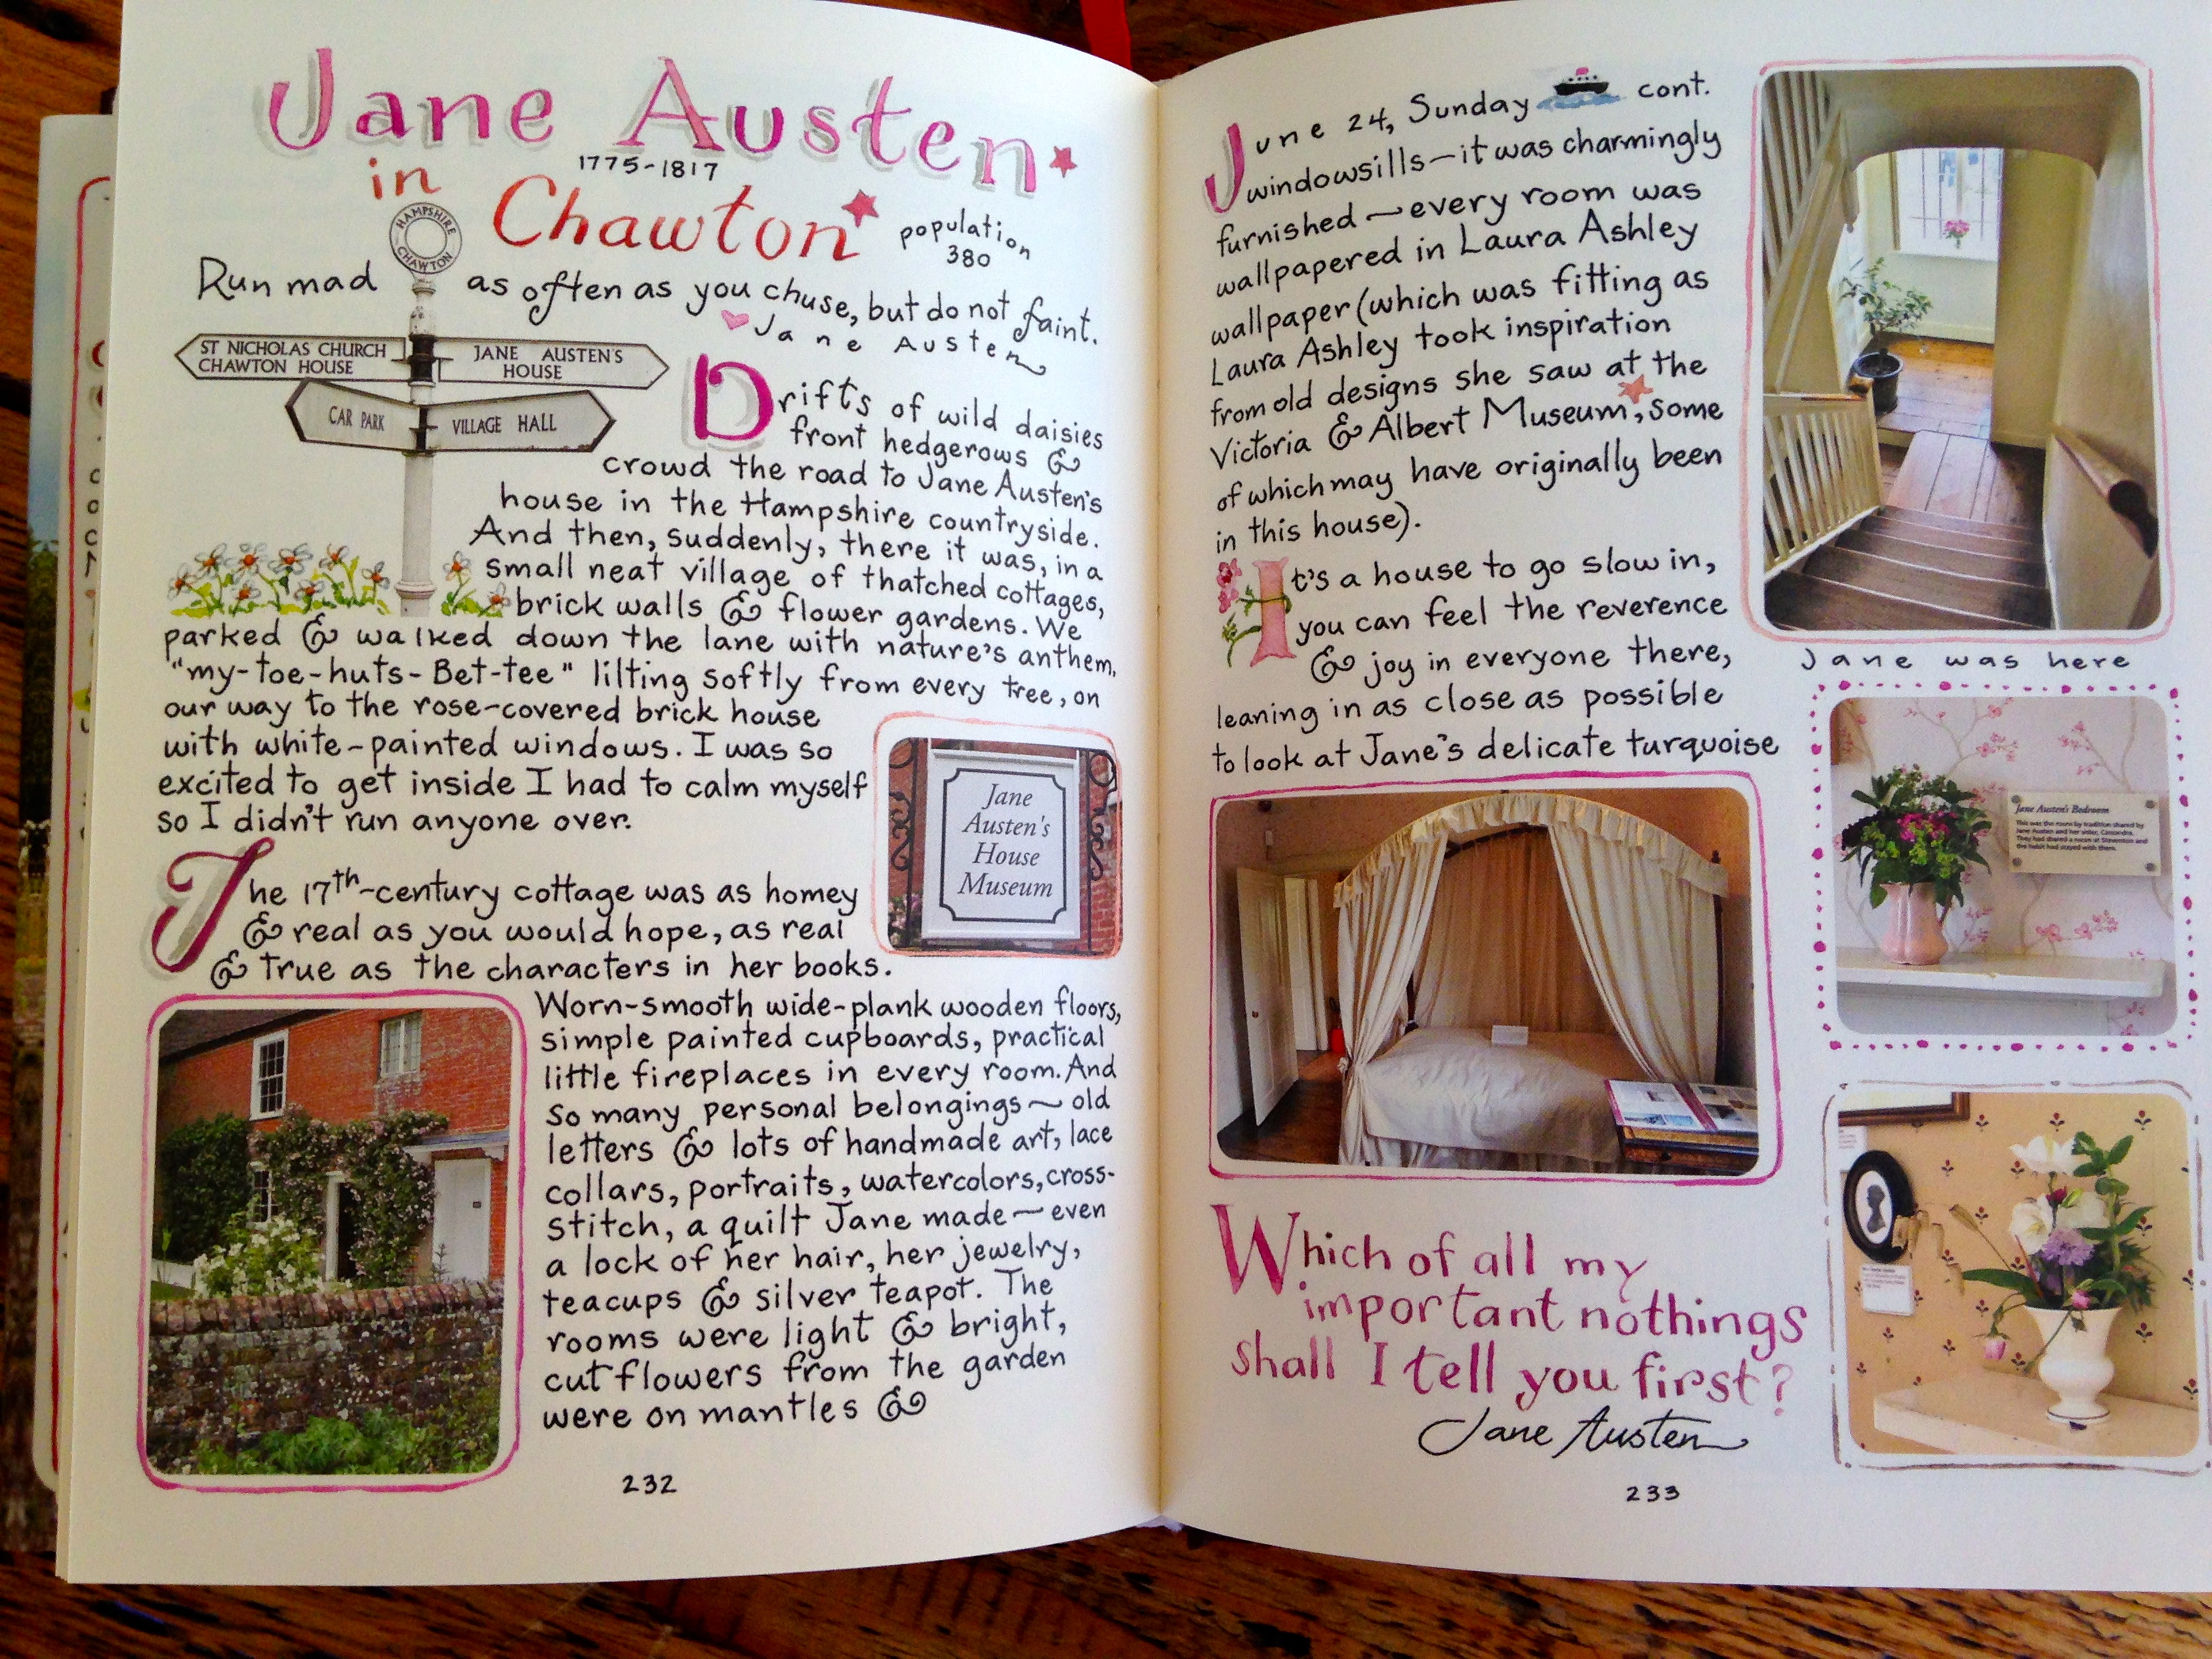 Jane Austen
1775-1817
in Chawton
population
380
HAMPSHIRE
CHAWTON
Run mad as often as you chuse, but do not faint.
Jane Austen
ST NICHOLAS CHURCH
CHAWTON HOUSE
JANE AUSTEN'S
HOUSE
CAR PARK
VILLAGE HALL
Drifts of wild daisies
front hedgerows &
crowd the road to Jane Austen's
house in the Hampshire countryside.
And then, suddenly, there it was, in a
small neat village of thatched cottages,
brick walls & flower gardens. We
parked & walked down the lane with nature's anthem,
"my-toe-huts-Bet-tee" lilting softly from every tree, on
our way to the rose-covered brick house
with white-painted windows. I was so
excited to get inside I had to calm myself
so I didn't run anyone over.
Jane
Austen's
House
Museum
The 17th-century cottage was as homey
& real as you would hope, as real
& true as the characters in her books.
Worn-smooth wide-plank wooden floors,
simple painted cupboards, practical
little fireplaces in every room. And
so many personal belongings~old
letters & lots of handmade art, lace
collars, portraits, watercolors, cross-
stitch, a quilt Jane made—even
a lock of her hair, her jewelry,
teacups & silver teapot. The
rooms were light & bright,
cut flowers from the garden
were on mantles &
232
June 24, Sunday cont.
windowsills—it was charmingly
furnished~every room was
wallpapered in Laura Ashley
wallpaper (which was fitting as
Laura Ashley took inspiration
from old designs she saw at the
Victoria & Albert Museum, some
of which may have originally been
in this house).
It's a house to go slow in,
you can feel the reverence
& joy in everyone there,
leaning in as close as possible
to look at Jane's delicate turquoise
Jane was here
Jane Austen's Bedroom
This was the room by tradition shared by
Jane Austen and her sister, Cassandra.
They had shared a room at Steventon and
the habit had stayed with them.
Which of all my
important nothings
shall I tell you first?
Jane Austen
233